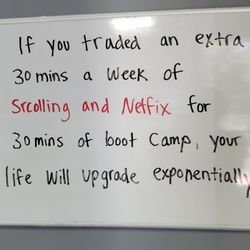 If you traded an extra
30 mins a week of
Srcolling and Netfix for
30 mins of boot Camp, your
life will upgrade exponentially